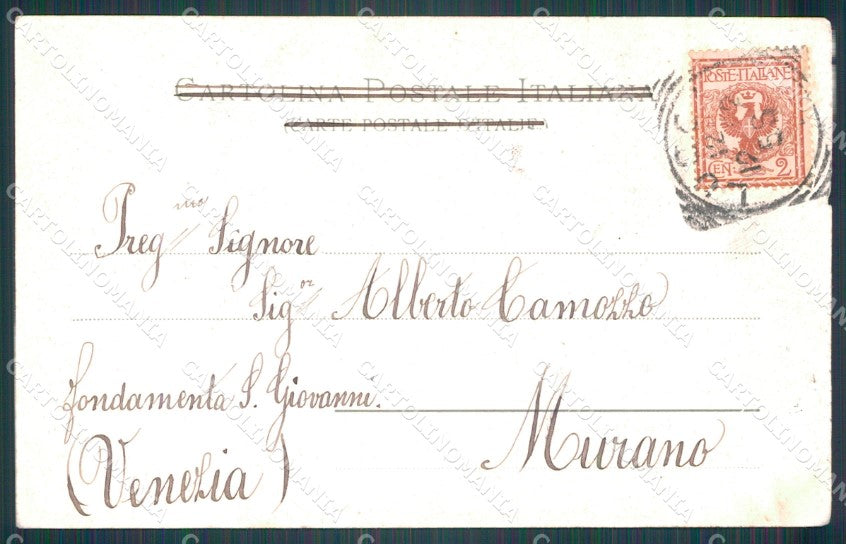 CARTOLINA POSTALE ITALIANA
CARTE POSTALE D'ITALIE
POSTE·ITALIANE
CEN 2
Preg.mo Signore
Sig.or Alberto Camozzo
fondamenta S. Giovanni.
Murano
(Venezia)
CARTOLINOMANIA